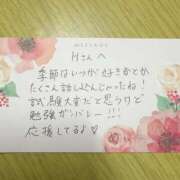 MESSAGE
Hさんへ
季節はいつが好きかとか
たくさん話しよんじゃったね!
試験大変だと思うけど
勉強ガンバレー!!!
応援してるよ♡